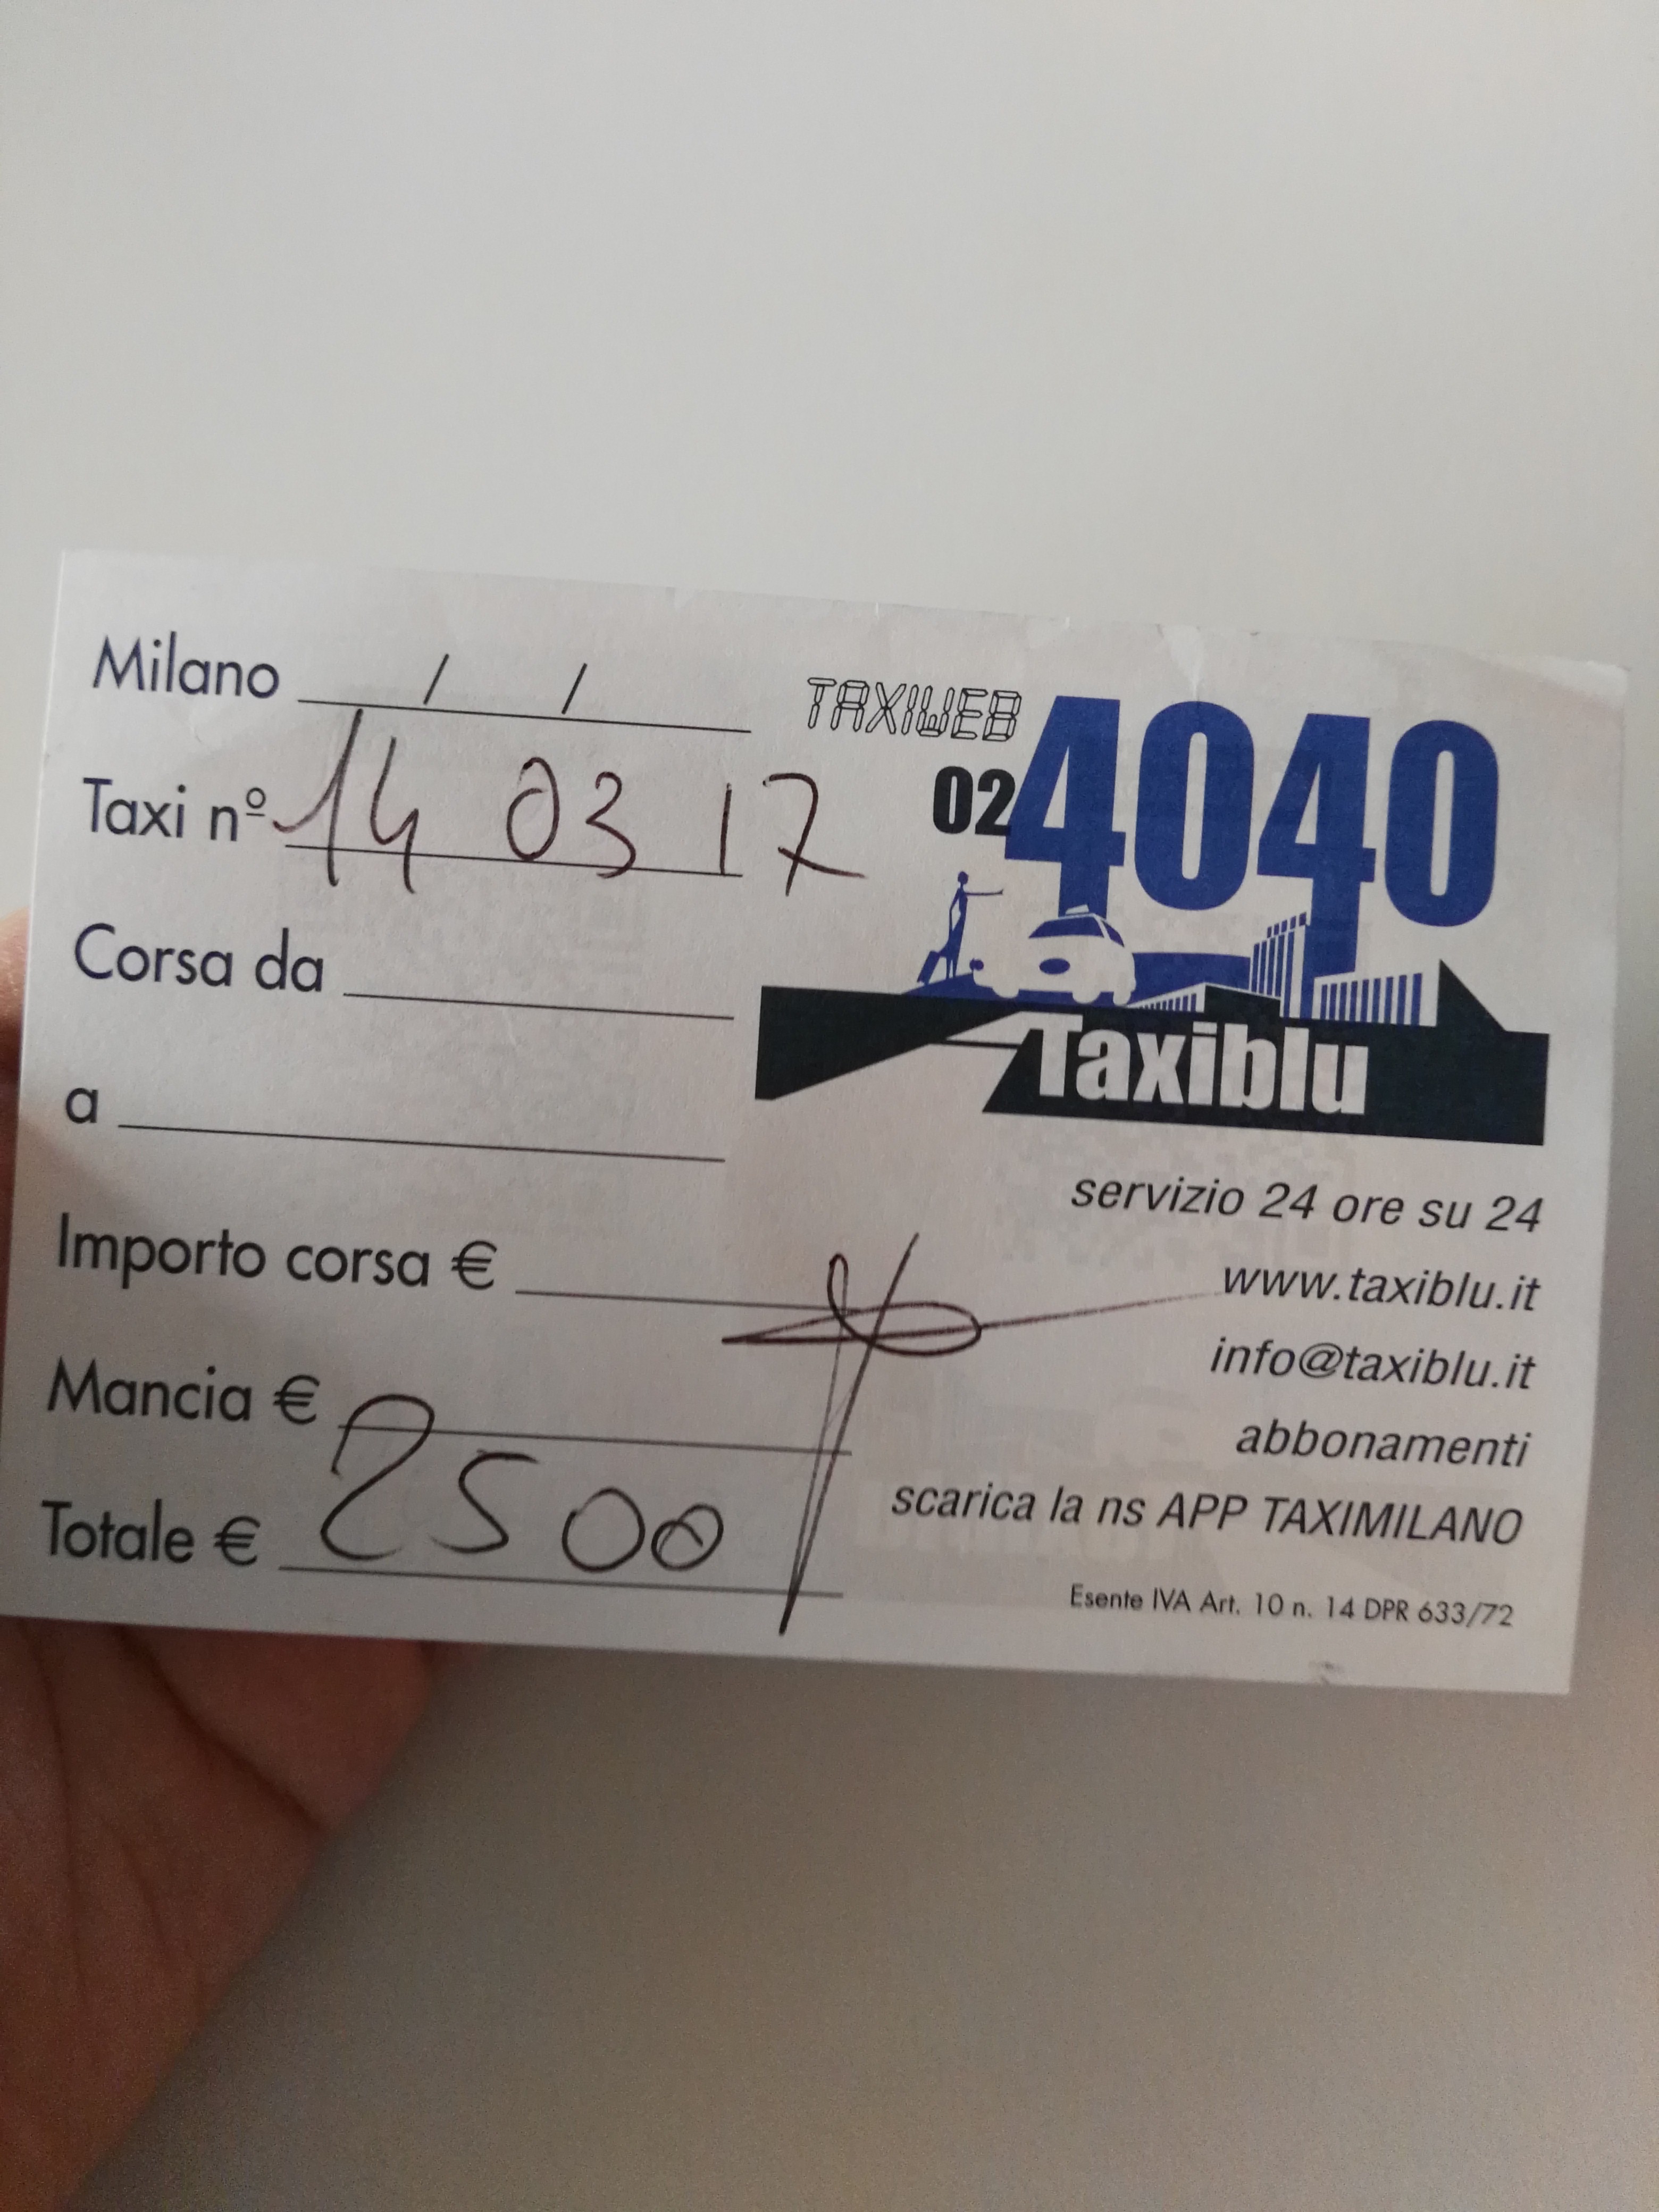 Milano / /
Taxi nº 14 03 17
Corsa da
a
Importo corsa €
Mancia €
Totale € 2500
TAXIWEB
02 4040
Taxiblu
servizio 24 ore su 24
www.taxiblu.it
info@taxiblu.it
abbonamenti
scarica la ns APP TAXIMILANO
Esente IVA Art. 10 n. 14 DPR 633/72